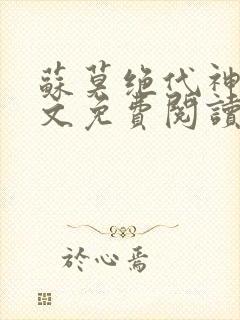 蘇莫绝代神
文免費閱讀
於心焉